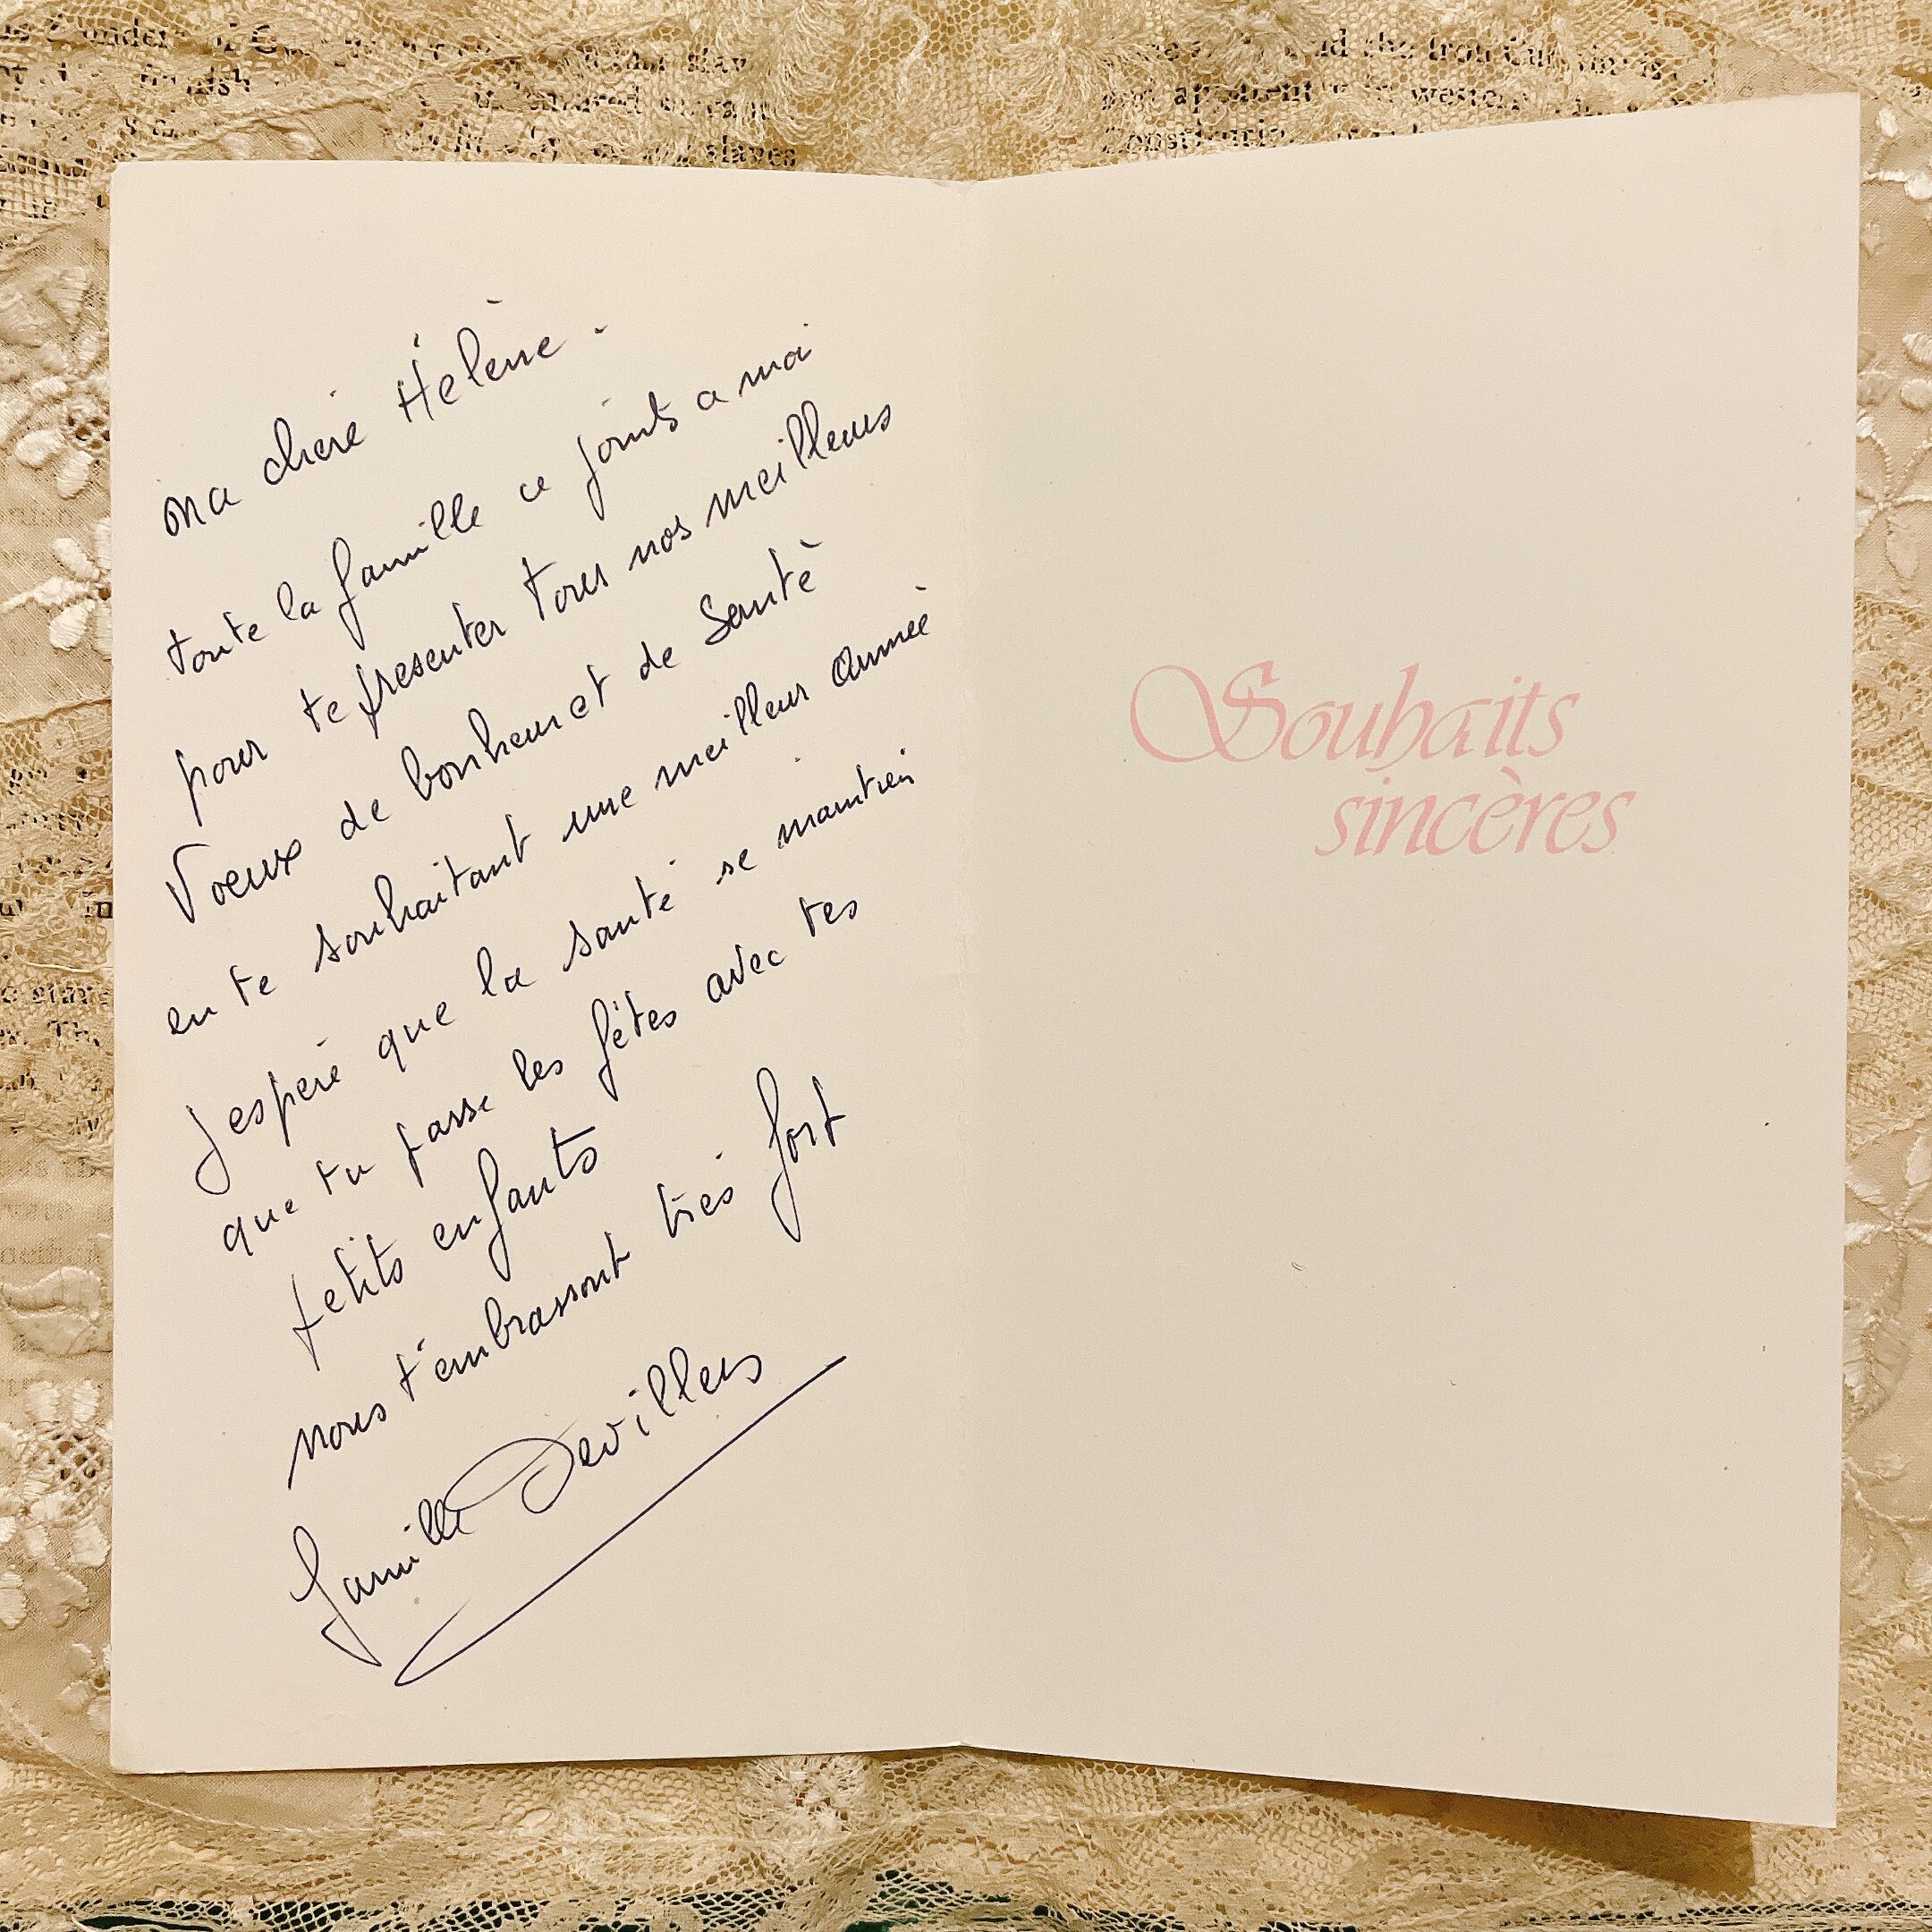 Ma chère Hélène -
toute la famille ce joints a moi
pour te presenter tous nos meilleurs
Voeux de bonheur et de Santè
en te souhaitant une meilleur Année
Jesperé que la santé se maintien
que tu passe les fêtes avec tes
petits enfants
nous t'embrassont très fort
famille Devillers
Souhaits
sincères